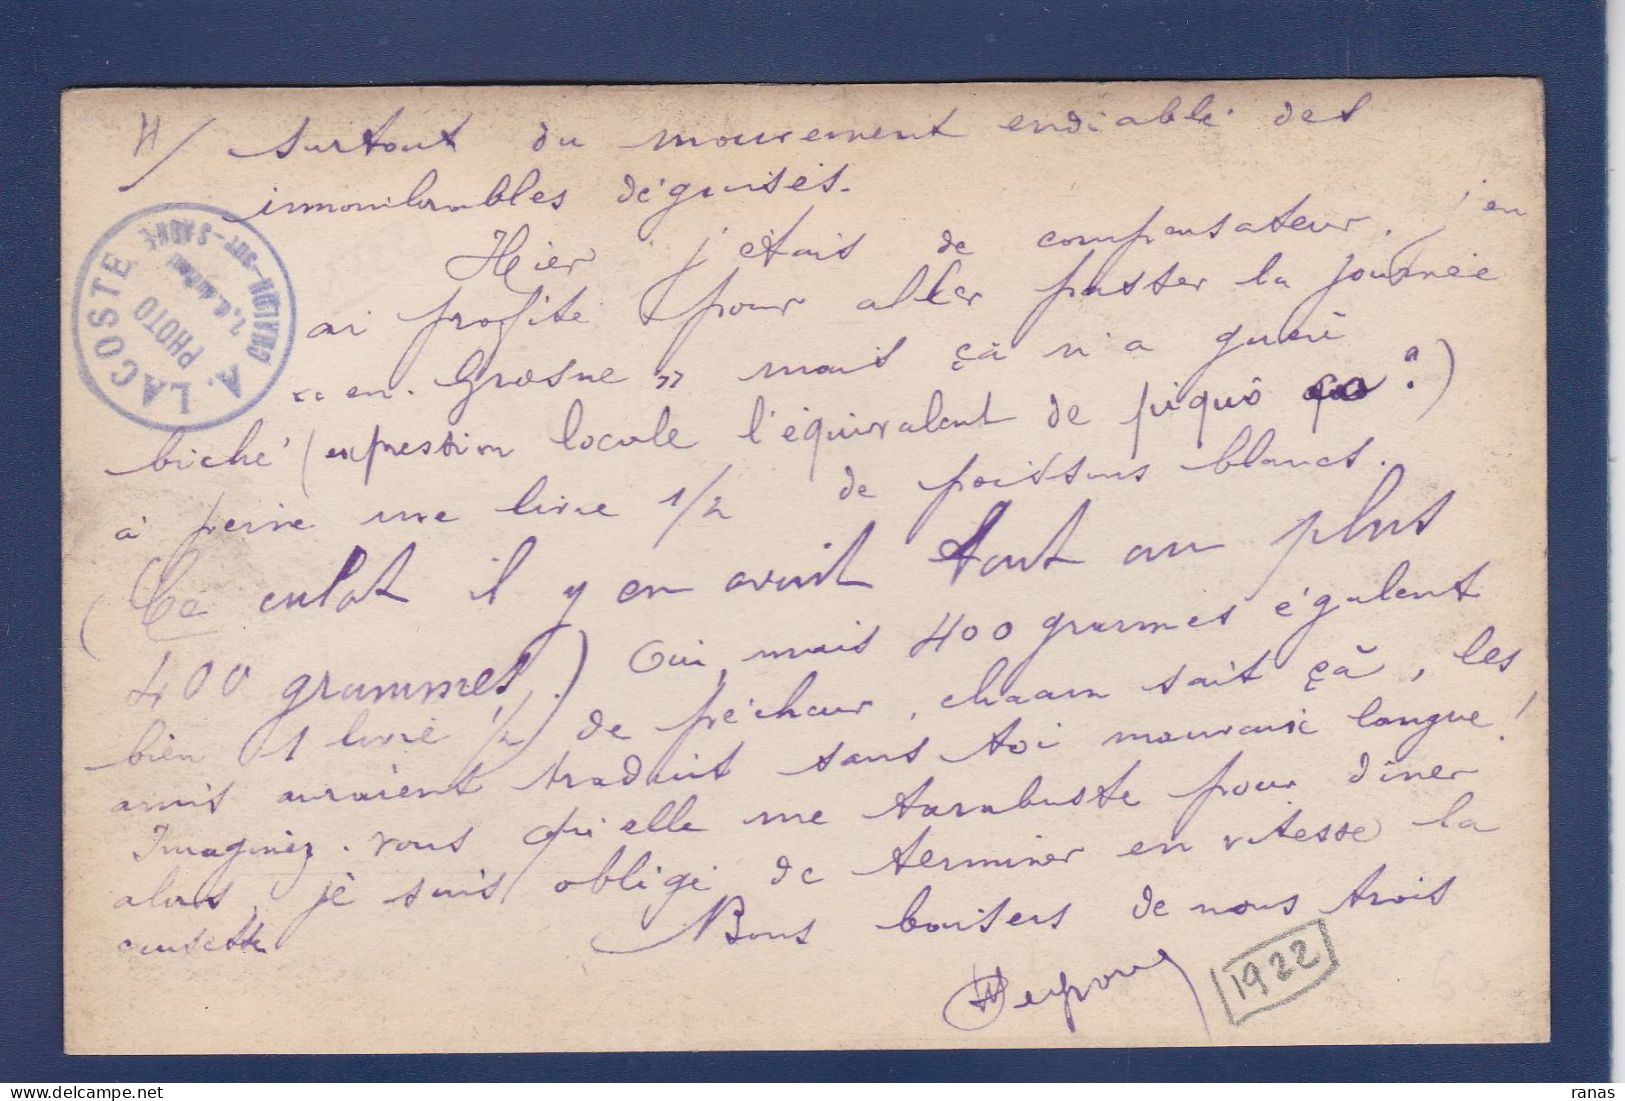 4/ surtout du mouvement endiablé des
innombrables déguisés.
Hier j'étais de compensateur, j'en
ai profité pour aller passer la journée
"en Grosne" mais çà n'a guère
biché (expression locale l'équivalent de piqué ?)
à peine une livre 1/2 de poissons blancs.
(Ce culot il y en avait tout au plus
400 grammes.) Oui, mais 400 grammes égalent
bien 1 livre 1/2 de pécheur, chacun sait çà, les
amis auraient traduit sans toi mauvaise langue!
Imaginez-vous qu'elle me tarabuste pour dîner
alors je suis obligé de terminer en vitesse la
causette
Bons baisers de nous trois
1922
A. LACOSTE
PHOTO
CHALON-SUR-SAONE
ranas